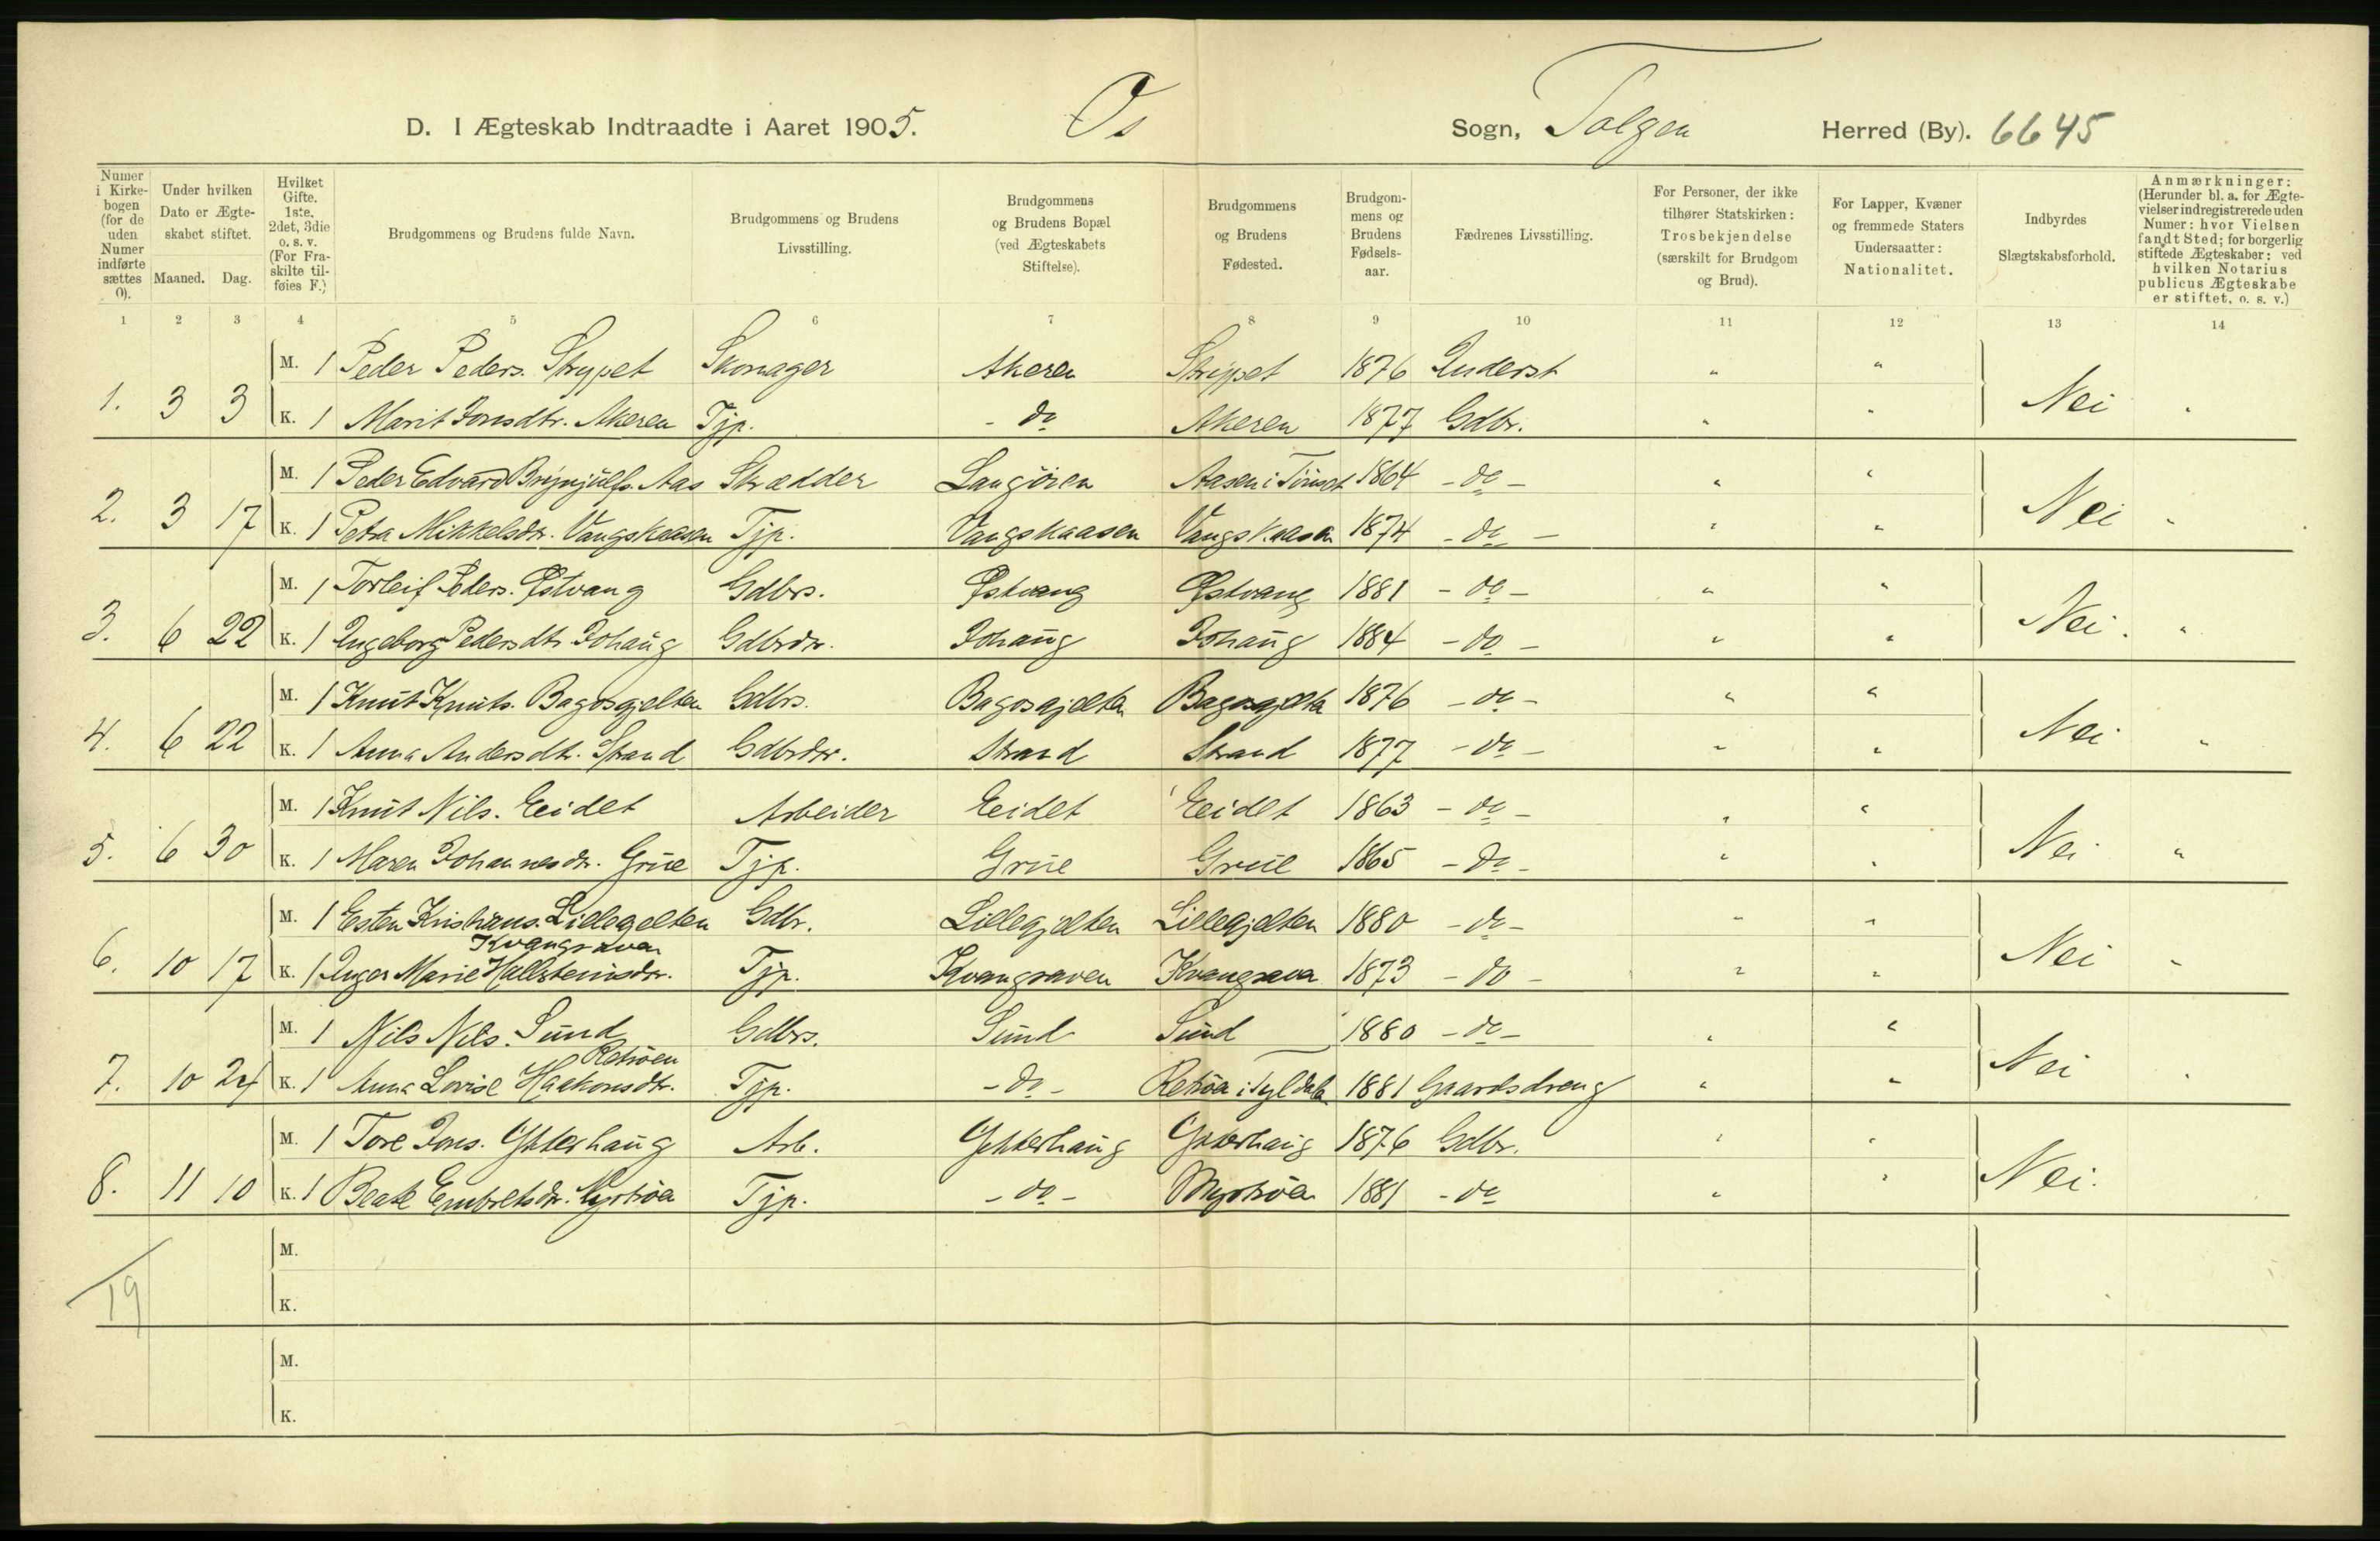 D. I Ægteskab Indtraadte i Aaret 1905. Os Sogn, Tolgen Herred (By). 6645
Numer i Kirkebogen (for de uden Numer indførte sættes 0).
Under hvilken Dato er Ægteskabet stiftet.
Maaned. Dag.
Hvilket Gifte. 1ste, 2det, 3die o. s. v. (For Fraskilte tilføies F.)
Brudgommens og Brudens fulde Navn.
Brudgommens og Brudens Livsstilling.
Brudgommens og Brudens Bopæl (ved Ægteskabets Stiftelse).
Brudgommens og Brudens Fødested.
Brudgommens og Brudens Fødselsaar.
Fædrenes Livsstilling.
For Personer, der ikke tilhører Statskirken: Trosbekjendelse (særskilt for Brudgom og Brud).
For Lapper, Kvæner og fremmede Staters Undersaatter: Nationalitet.
Indbyrdes Slægtskabsforhold.
Anmærkninger: (Herunder bl. a. for Ægtevielser indregistrerede uden Numer: hvor Vielsen fandt Sted; for borgerlig stiftede Ægteskaber: ved hvilken Notarius publicus Ægteskabe er stiftet, o. s. v.)
1 2 3 4 5 6 7 8 9 10 11 12 13 14
M. 1 Peder Peders. Strypet Skomager Akeren Strypet 1876 Inderst " "
1. 3 3 K. 1 Marit Jonsdtr. Akeren Tjp. - do Akeren 1877 Gdbr. " " Nei "
M. 1 Peder Edvard Brynjülfs. Aas Skrædder Langøien Aasen i Tönset 1864 - do - " "
2. 3 17 K. 1 Petra Mikkelsdr. Vangskaasen Tjp. Vangskaasen Vangskaasen 1874 - do - " " Nei "
M. 1 Torleif Peders. Østvang Gdbrs. Østvang Østvang 1881 - do - " "
3. 6 22 K. 1 Ingeborg Pedersdtr. Johaüg Gdbrdr. Johaüg Johaüg 1884 - do - " " Nei. "
M. 1 Knüt Knüts. Bagosgjelten Gdbrs. Bagosgjelten Bagosgjelten 1876 - do - " "
4. 6 22 K. 1 Anna Andersdtr. Strand Gdbrdr. Strand Strand 1877 - do - " " Nei "
M. 1 Knüt Nils. Eeidet Arbeider Eeidet Eeidet 1863 - do - " "
5. 6 30 K. 1 Maren Johannesdr. Grüe Tjp. Grüe Grüe 1865 - do - " " Nei "
M. 1 Esten Kristians. Lillegjelten Gdbr. Lillegjelten Lillegjelten 1880 - do - " "
Kvangraven
6. 10 17 K. 1 Inger Marie Hallsteinsdr. Tjp. Kvangraven Kvangraven 1873 - do - " " Nei "
M. 1 Nils Nils. Sünd Gdbrs. Sünd Sünd 1880 - do - " "
Retrøen
7. 10 24 K. 1 Anna Lovise Haakonsdtr. Tjp. - do - Retrøen i Tyldalen 1881 Gaardsdreng " " Nei "
M. 1 Tore Jons. Ytterhaüg Arb. Ytterhaüg Ytterhaüg 1876 Gdbr. " "
8. 11 10 K. 1 Beate Embretsdr. Nyrtrøa Tjp. - do - 1881 - do " " Nei.
M.
19 K.
M.
K.